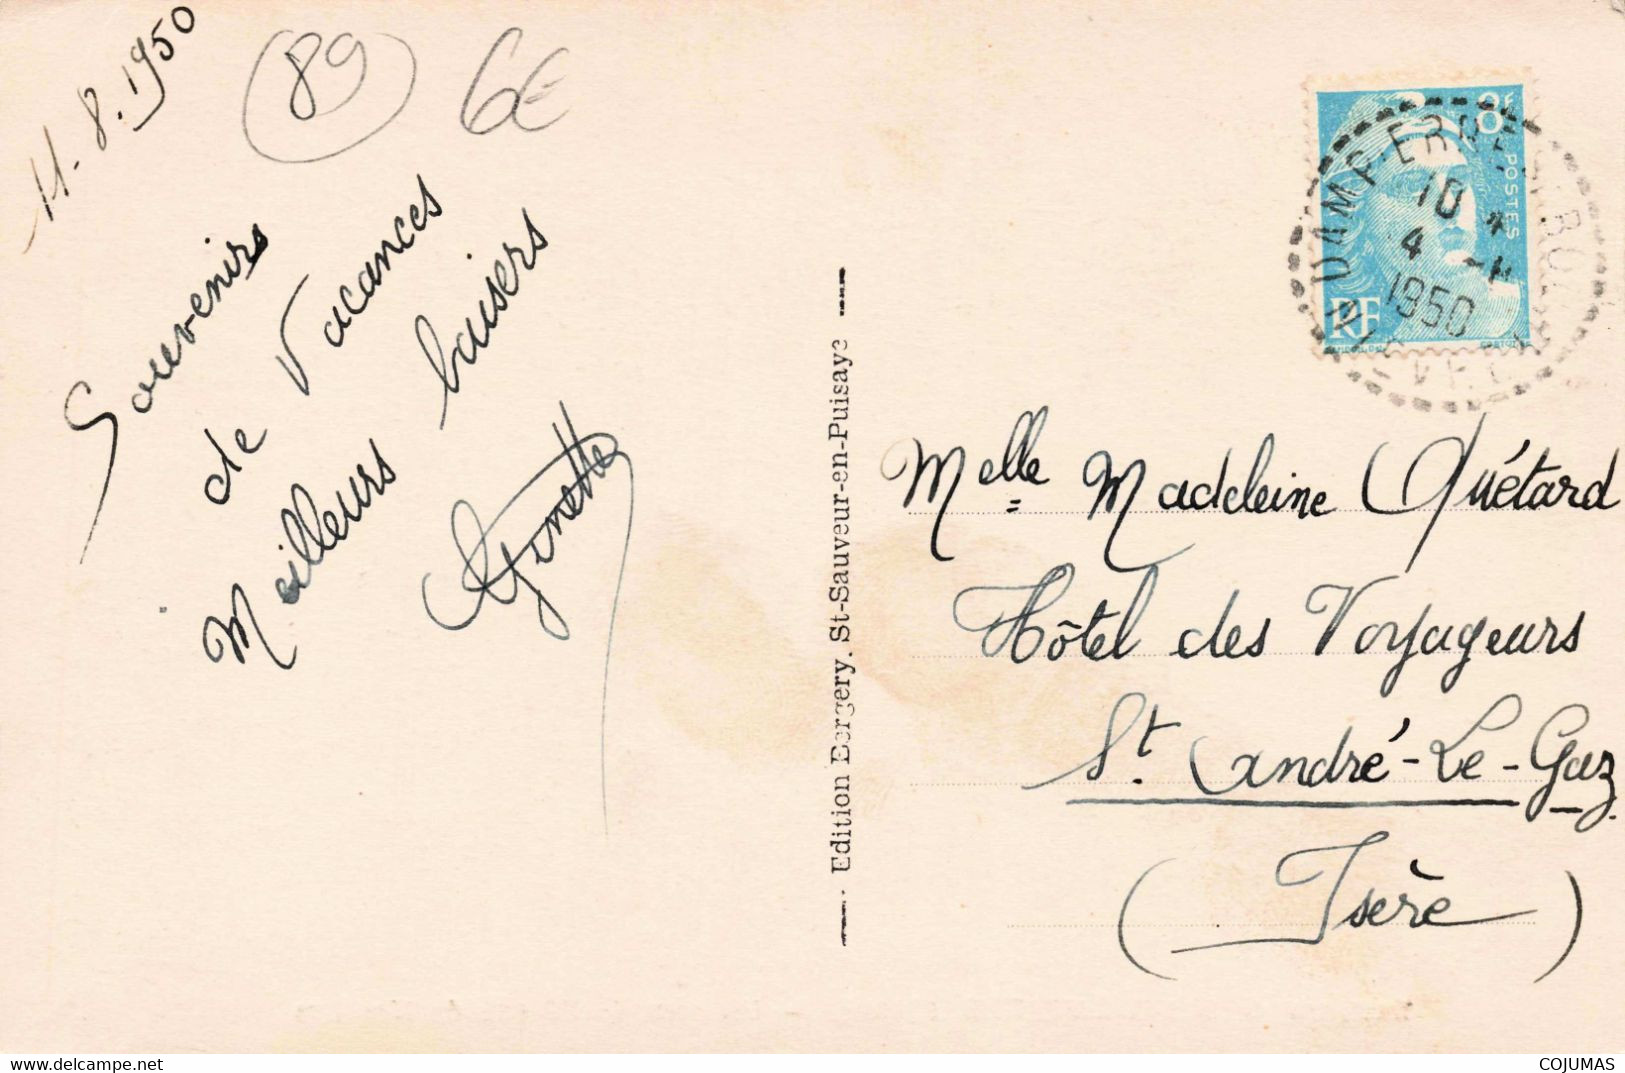 11-8.1950
89
6€
Souvenirs
de Vacances
Meilleurs baisers
Ginette
Edition Bergery, St-Sauveur-en-Puisaye
8F
POSTES
RF
10 *
4 -
1950
Melle Madeleine Quétard
Hôtel des Voyageurs
St. André-Le-Gaz.
(Isère)
COJUMAS